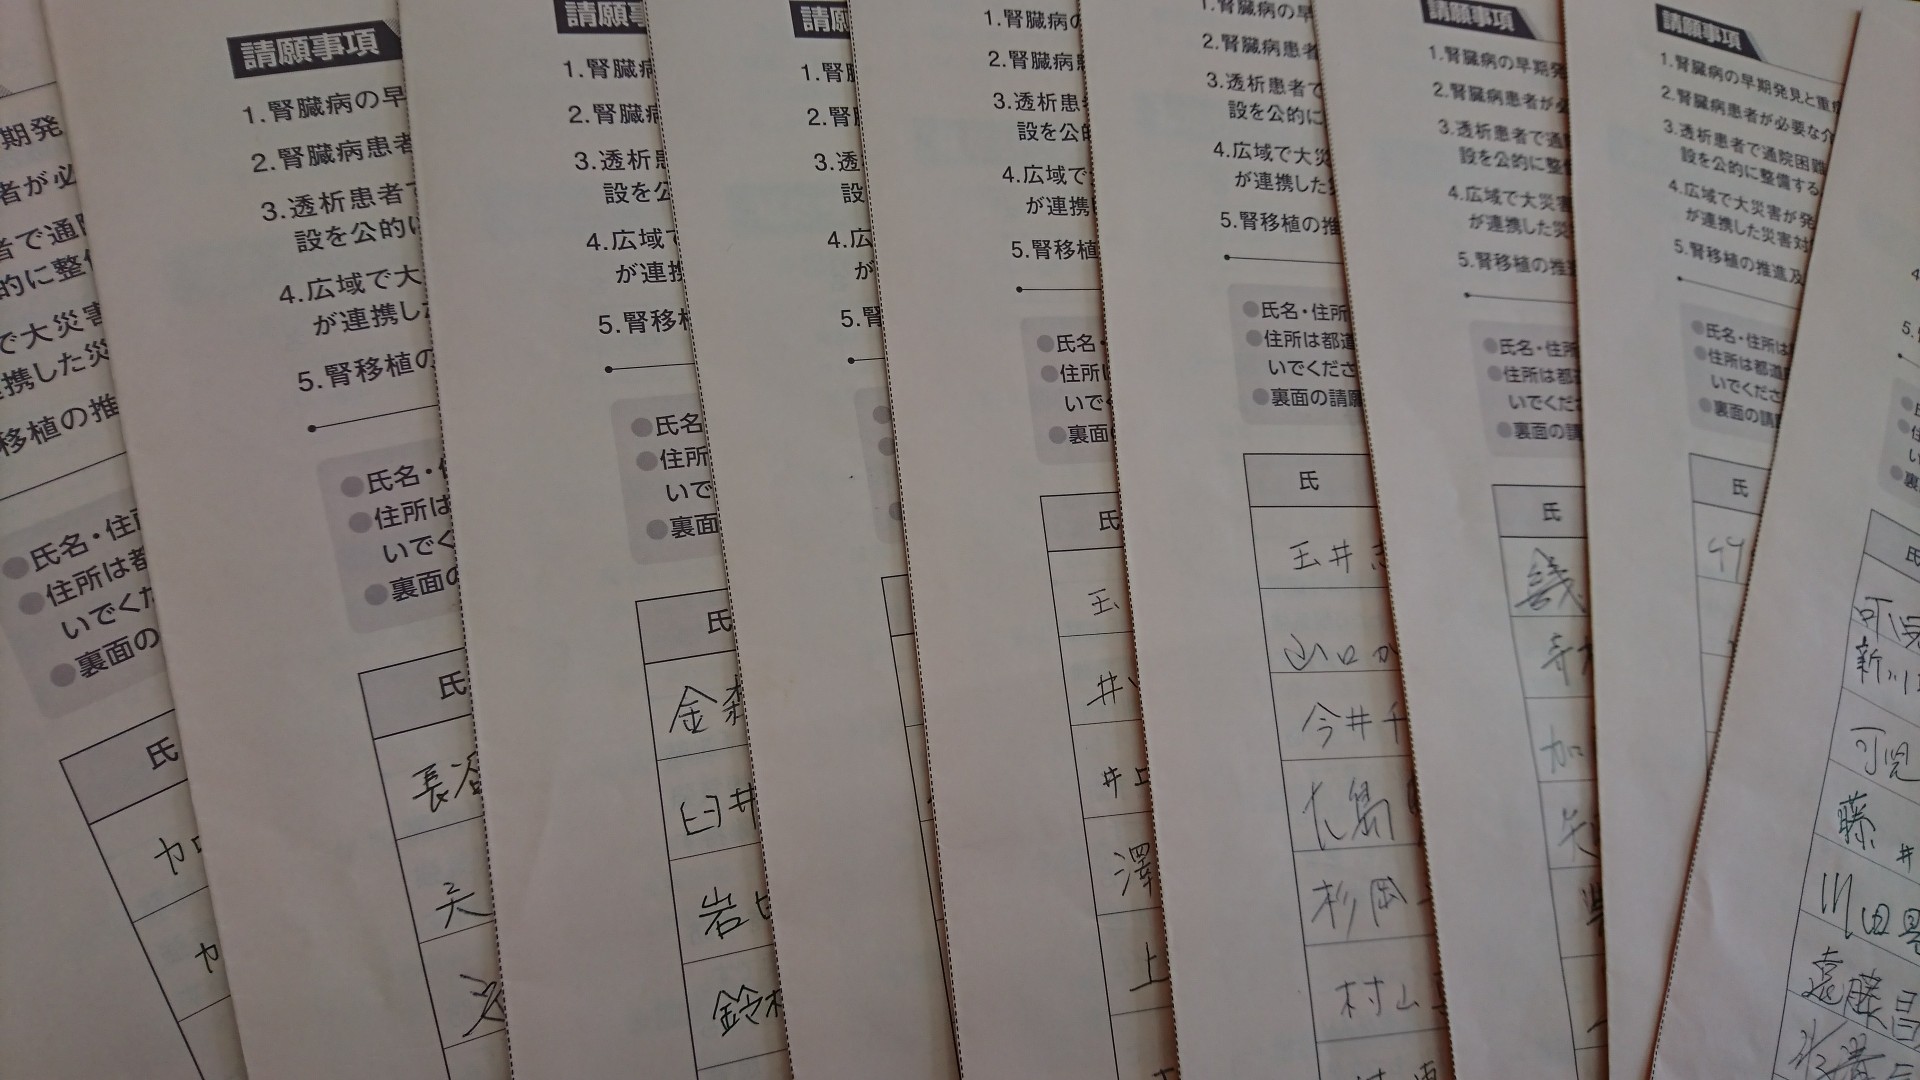 期発
者が必
者で通院
的に整備
で大災害
携した災
移植の推
氏名・住所
住所は都
いでくだ
裏面の
氏
加
請願事項
1.腎臓病の早
2.腎臓病患者
3.透析患者で
設を公的に
4.広域で大
が連携し
5.腎移植の
氏名・住
住所は
いでく
裏面の
氏
長谷
請願事
1.腎臓病
2.腎臓病
3.透析患
設を公
4.広域で
が連携
5.腎移植
氏名
住所
いで
裏面
氏
金森
臼井
岩
鈴木
請願
1.腎
2.腎
3.透
設
4.広
が
5.腎
1.腎臓病の
2.腎臓病患
3.透析患者
設を公的
4.広域で
が連携
5.腎移植
氏名・
住所は
いで
裏面
氏
玉
井
井上
澤
上
1.腎臓病の早
2.腎臓病患者
3.透析患者で
設を公的に
4.広域で大災
が連携した
5.腎移植の推
氏名・住所
住所は都道
いでくださ
裏面の請願
氏
玉井志
山口か
今井千
大島
杉岡
村山
請願事項
1.腎臓病の早期発
2.腎臓病患者が必
3.透析患者で通院
設を公的に整備
4.広域で大災害
が連携した災
5.腎移植の推進
氏名・住所
住所は都道
いでくださ
裏面の請
氏
寺
加
矢
請願事項
1.腎臓病の早期発見と重症
2.腎臓病患者が必要な介
3.透析患者で通院困難
設を公的に整備する
4.広域で大災害が発
が連携した災害対
5.腎移植の推進及
氏名・住所は
住所は都道
いでくださ
裏面の請
氏
4
5.
氏
住
い
裏
氏
可児
新川
可児
藤井
川田
遠藤昌